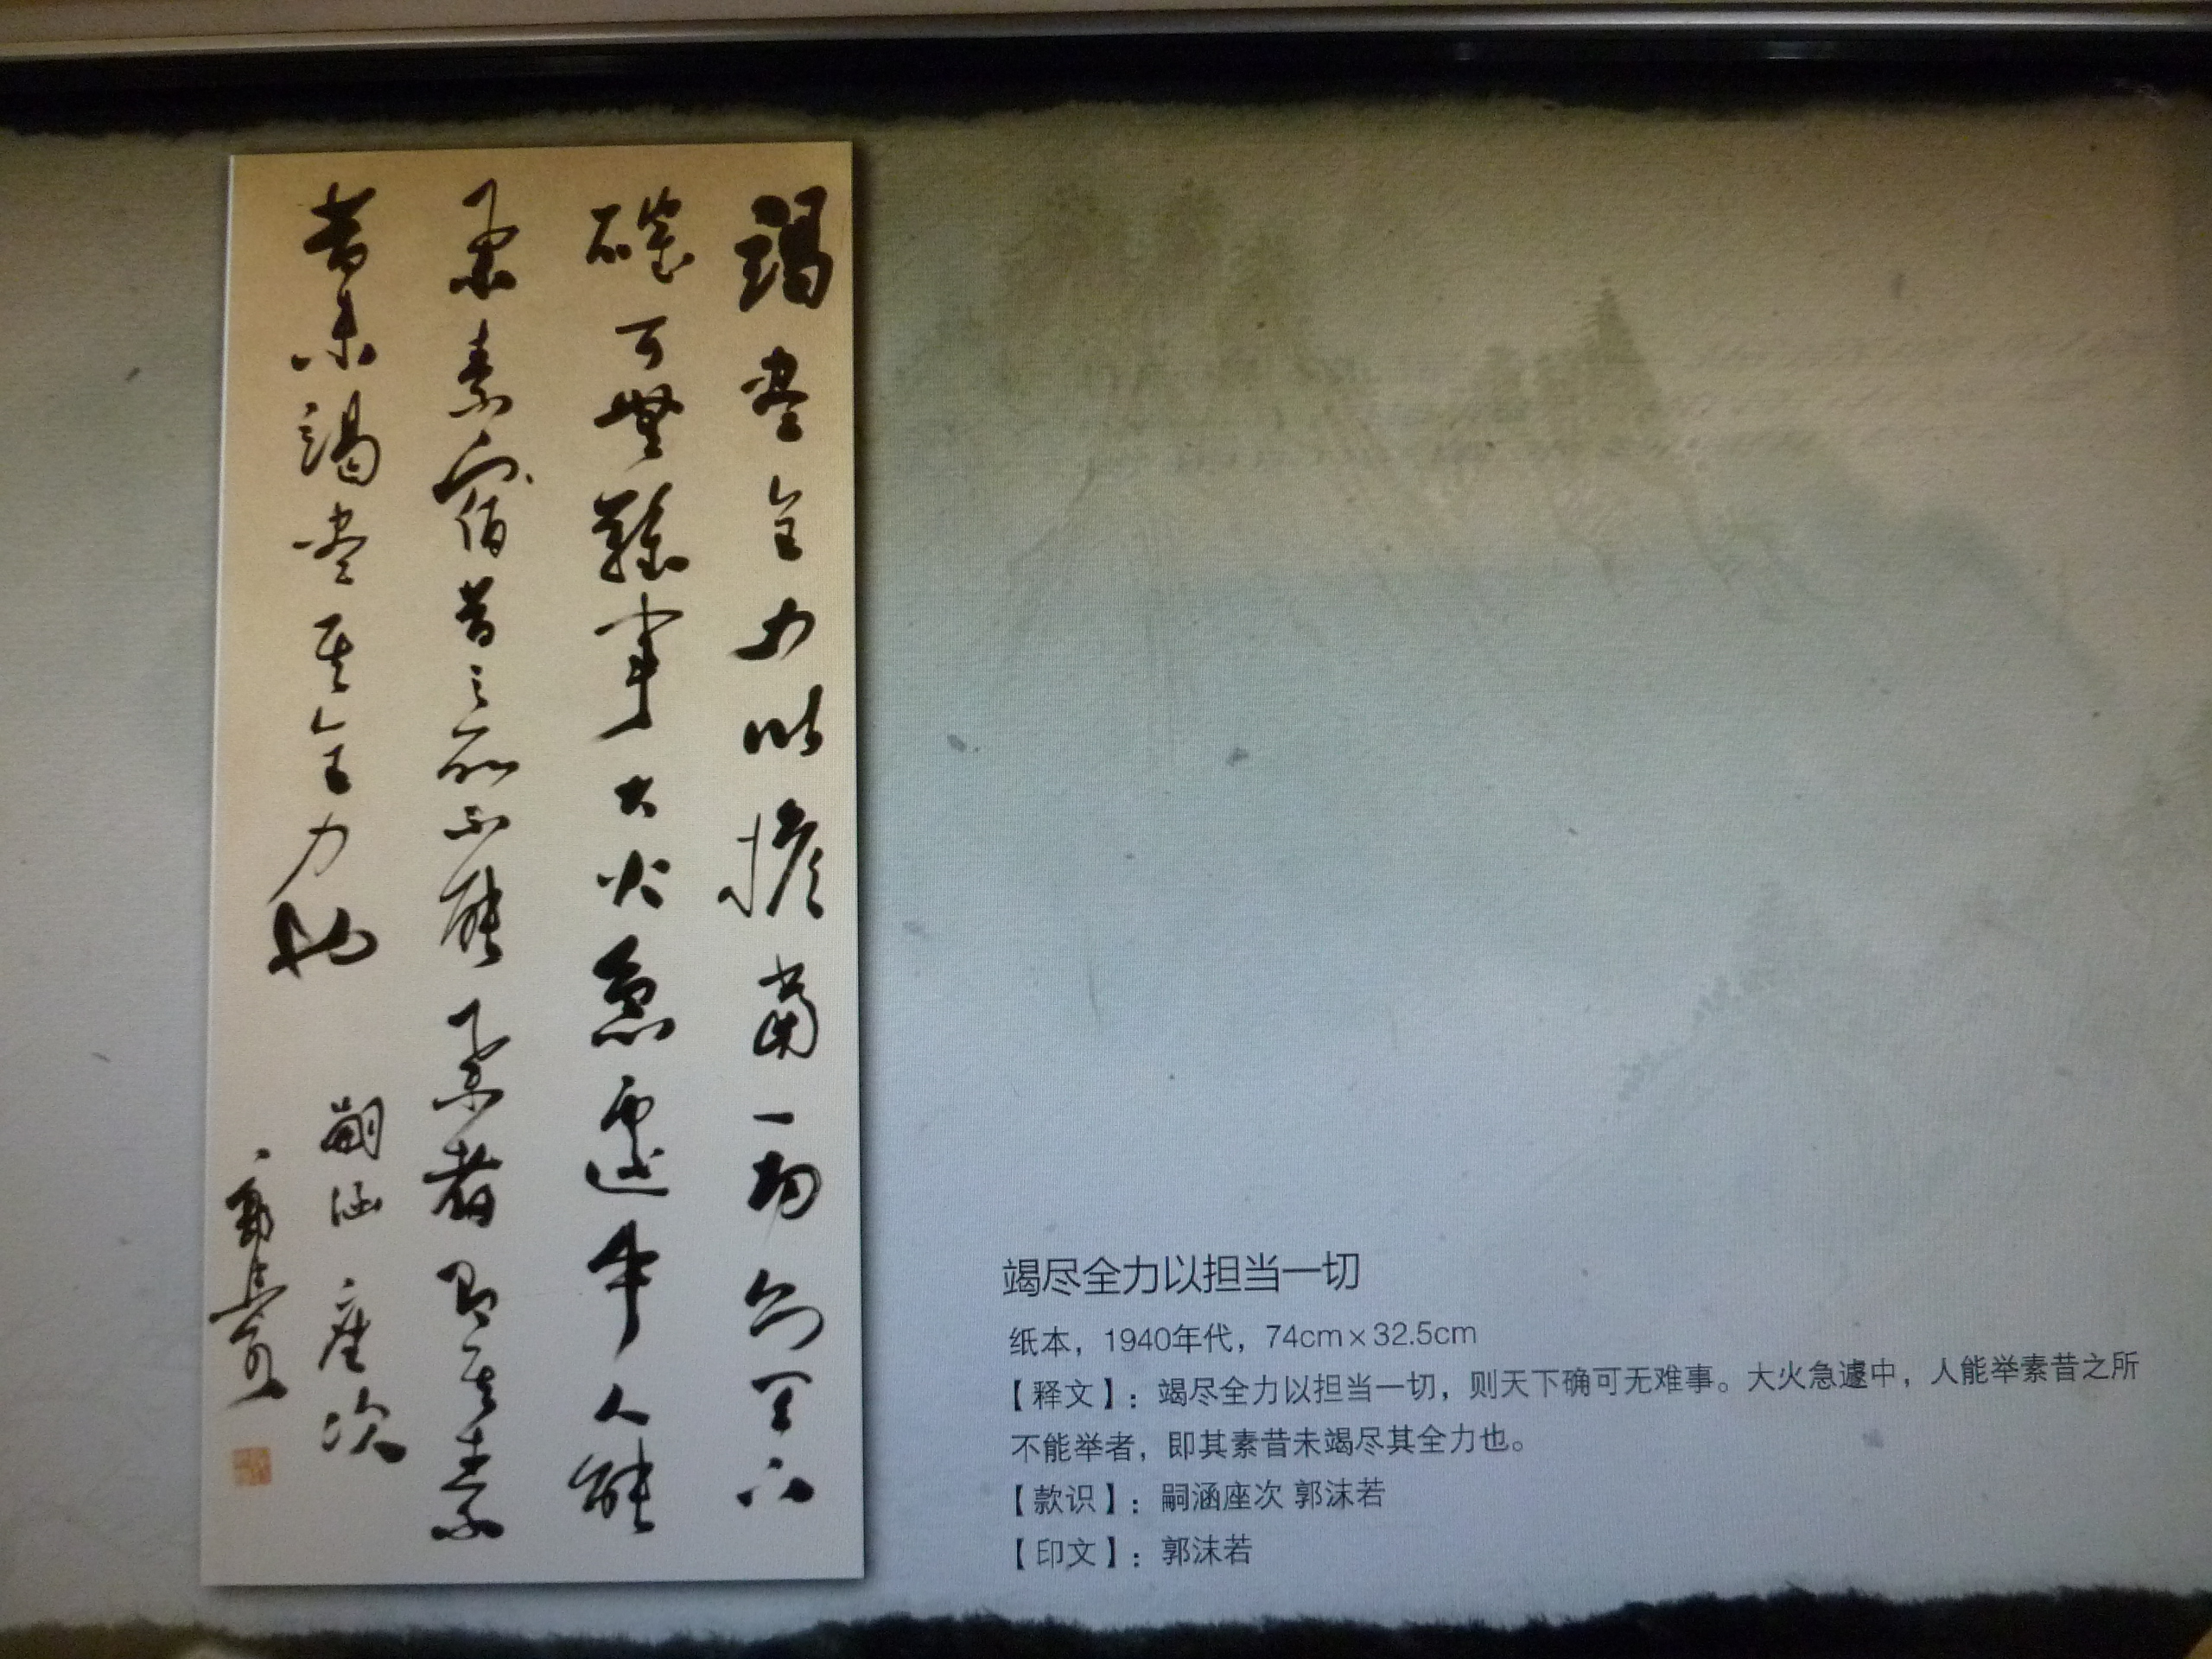 竭盡全力以擔當一切則天下
確可無難事大火急遽中人能
舉素宿昔之所不能舉者即其素
昔未竭盡其全力也 嗣涵座次
郭沫若
竭尽全力以担当一切
纸本，1940年代，74cm×32.5cm
【释文】：竭尽全力以担当一切，则天下确可无难事。大火急遽中，人能举素昔之所
不能举者，即其素昔未竭尽其全力也。
【款识】：嗣涵座次 郭沫若
【印文】：郭沫若